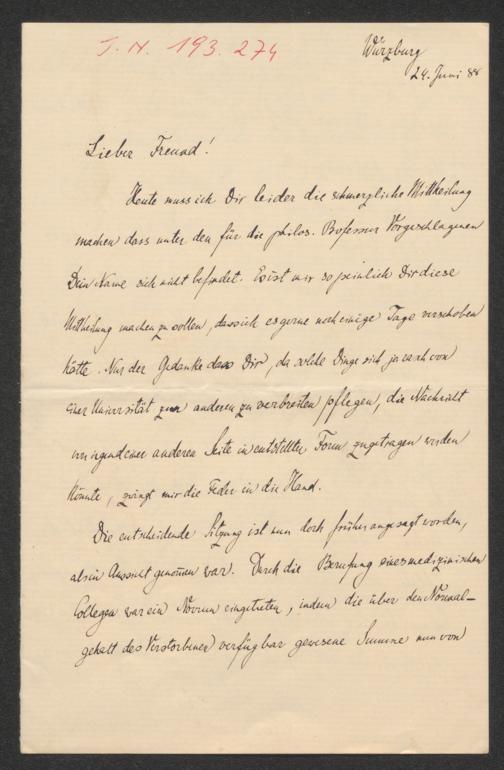 J. N. 193.274
Würzburg
24. Juni 88
Lieber Freund!
Heute muss ich Dir leider die schmerzliche Mittheilung
machen dass unter den für die philos. Professur Vorgeschlagenen
Dein Name sich nicht befindet. Es ist mir so peinlich Dir diese
Mittheilung machen zu sollen, dass ich es gerne noch einige Tage verschoben
hätte. Nur der Gedanke dass Dir, da solche Dinge sich ja rasch von
einer Universität zur anderen zu verbreiten pflegen, die Nachricht
von irgend einer anderen Seite in entstellter Form zugetragen werden
könnte, zwingt mir die Feder in die Hand.
Die entscheidende Sitzung ist nun doch früher angesagt worden,
als in Aussicht genommen war. Durch die Berufung eines medizinischen
Collegen war ein Novum eingetreten, indem die über den Normal-
gehalt des Verstorbenen verfügbar gewesene Summe nun von